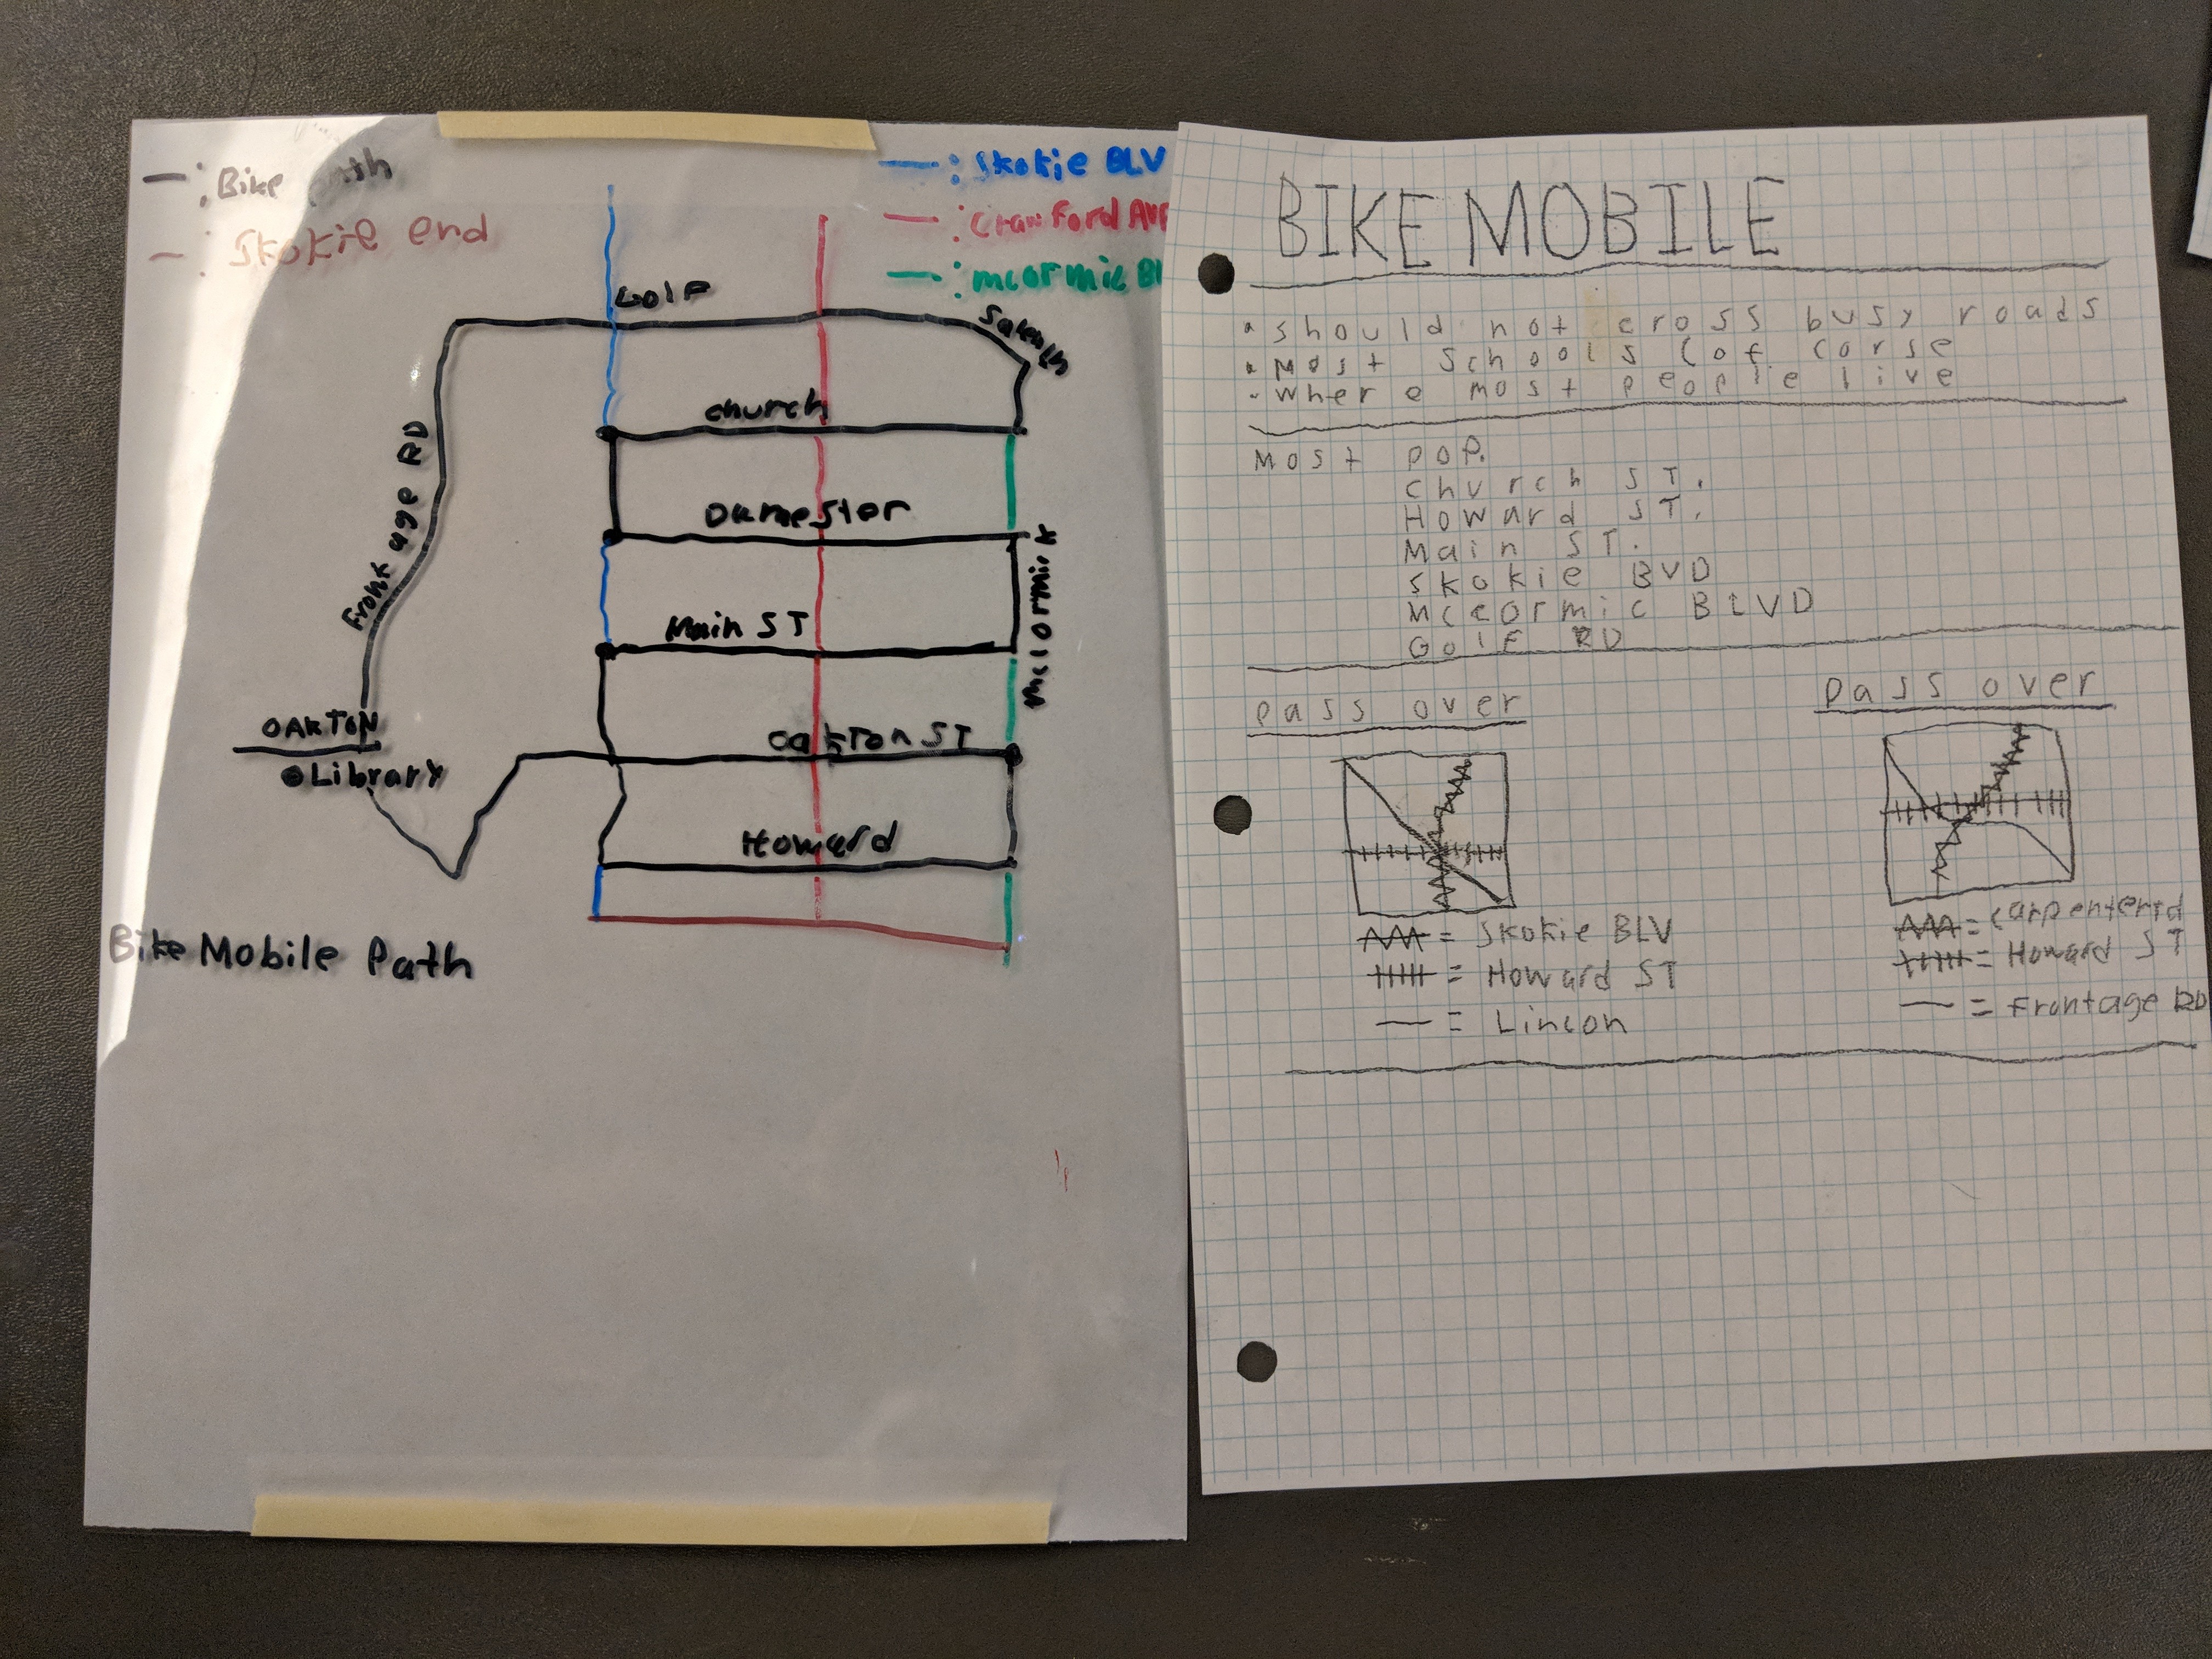 — : Bike Path
— : Skokie end
— : Skokie BLV
— : Crawford Ave
— : mcormic Bl
Golf
Church
Dumester
Main ST
Mclormick
Frontage RD
OAKTON
Library
Oakton ST
Howard
Bike Mobile Path
BIKE MOBILE
• should not cross busy roads
• Most Schools (of corse
• where most people live
Most pop.
Church ST.
Howard ST.
Main ST.
Skokie BVD
Mccormic BLVD
Golf RD
Pass over
= Skokie BLV
= Howard ST
— = Lincon
Pass over
= Carpenterrd
= Howard ST
— = Frontage RD